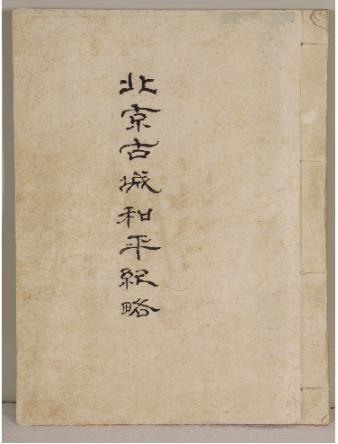 北京古城和平纪略